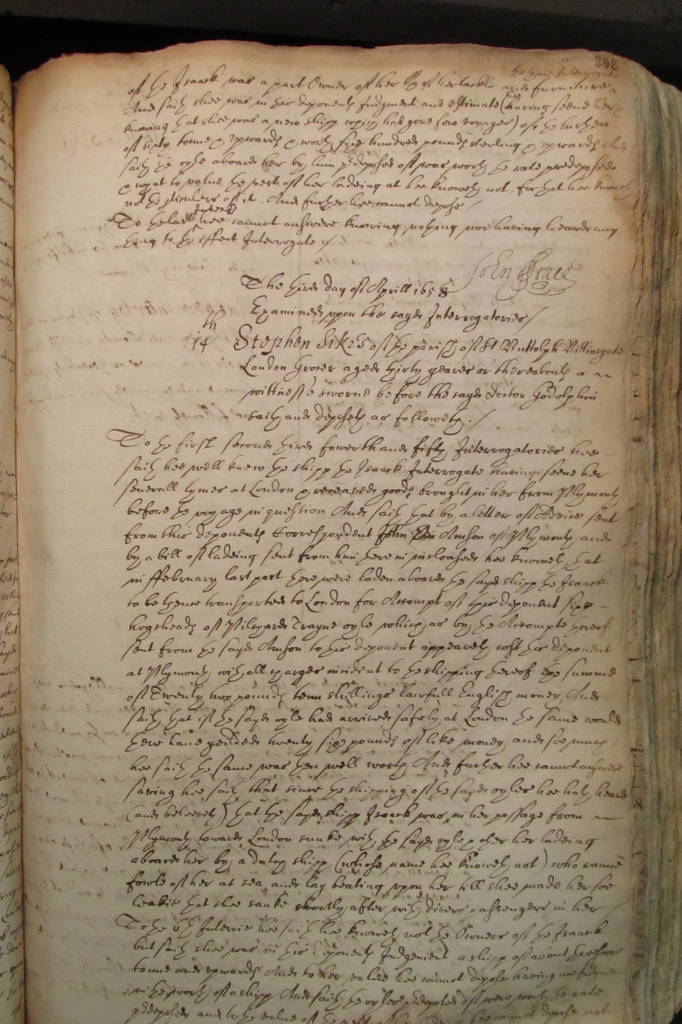 308
of the Isaack was a part Owner of her of her tackle and furniture
And saith shee was in his deponents Judgment and estimate (having seene her
knowing that shee was a new shipp having had gone two voyages) of the burthen
of sixty tonne & upwards & worth five hundred pounds sterling & upwards And
saith the oyle aboard her by him predeposed of was worth the rate predeposed
& what to value the rest of her ladeing at hee knoweth not for that hee knoweth
not the particulers of it. And further hee cannot depose
To the last Interr hee cannot answere knowing nothing nor having heard any
thing to the effect Interrogate /
John
The third day of Aprill 1658
Examined upon the sayd Interrogatories /
14th Stephen Sikes of the parish of St Buttolph Billinsgate
London Grocer aged thirty yeares or thereabouts a
wittnesse sworne before the sayd Doctor Godolphin
saith and deposeth as followeth. /
To the first second third fowerth and fifth Interrogatories hee
saith hee well knew the shipp the Isaack Interrogate having seene her
severall tymes at London & received goods brought in her from Plymouth
before the voyage in question And saith that by a letter of Advice sent
from this deponents Correspondent John Amson of Plymouth and
by a bill of ladeing sent from him herein inclosed hee knoweth that
in ffebruary last past there were laden aboard the sayd shipp the Isaack
to be thence transported to London for Accompt of this deponent six
hogsheads of Pilchards Trayne oyle which as by the Accompte thereof
sent from the sayd Amson to this deponent appeareth cost this deponent
at Plymouth with all charges incident to the shipping thereof the summe
of Twenty two pounds tenn shillings lawfull English money And
saith that if the sayd oyle had arrived safely at London the same would
there have yeilded twenty six pounds of like money and soe much
hee saith the same was then well worth And further hee cannot answere
saving hee saith that since the shipping of the sayd oyles hee hath heard
(and beleeveth) that the sayd shipp Isaack was in her passage from
Plymouth towards London sunke with the sayd oyle & other her ladeing
aboard her by a dutch shipp (whose name hee knoweth not) who came
fowle of her at sea and lay beating upon her till shee made her soe
leakie that shee sanke shortly after with divers passengers in her /
To the 6th Interrie hee saith hee knoweth not the Owners of the Isaack
but saith shee was in his deponents Judgement a shipp of about
tonne and upwards And to her value hee cannot depose having noe Judgment
in the worth of a shipp And saith the oyle predeposed of were worth the rate
predeposed and to the value of the rest of her ladeing hee cannot depose not